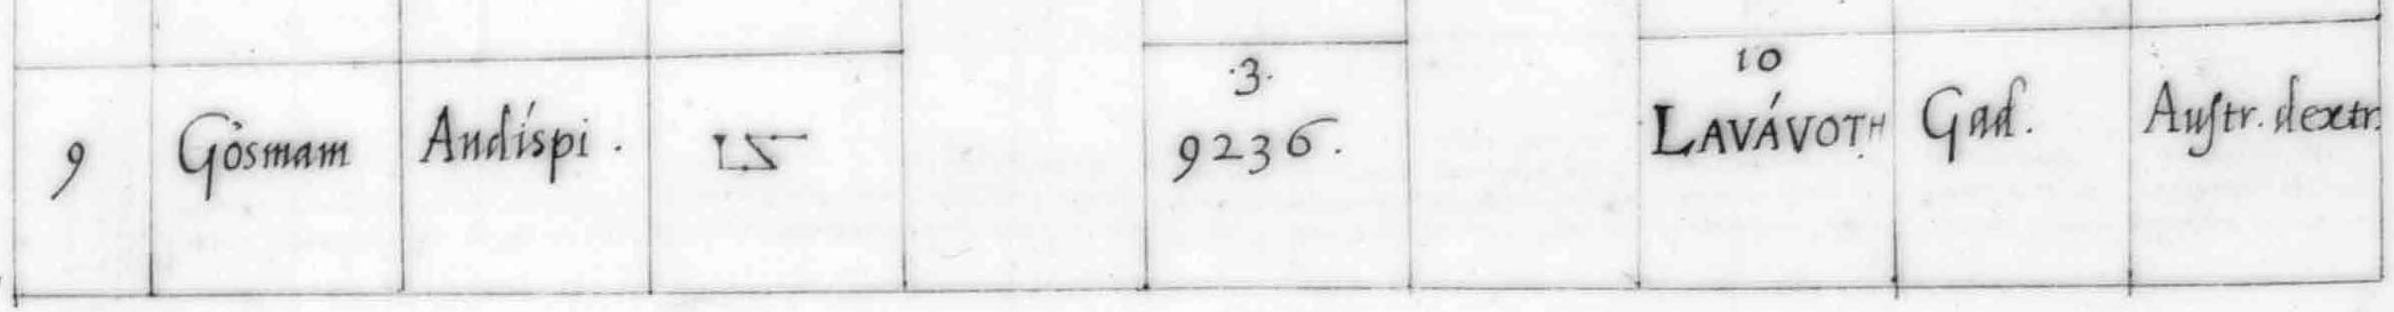 9 Gósmam Andíspi. 3. 9236. 10 LAVÁVOTH Gad. Auſtr. dextr.